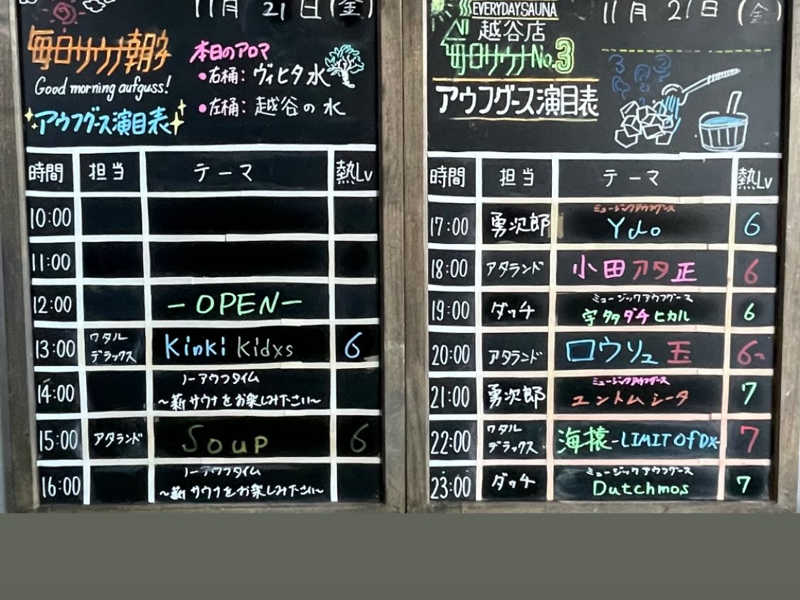 11月 21日(金)
毎日サウナ朝刊
Good morning aufguss!
アウフグース演目表
本日のアロマ
・右桶: ヴィヒタ水
・左桶: 越谷の水
時間 担当 テーマ 熱Lv
10:00
11:00
12:00 -OPEN-
13:00 ワタルデラックス Kinki Kidxs 6
14:00 ノーアウフタイム
〜薪サウナをお楽しみ下さい〜
15:00 アタランド Soup 6
16:00 ノーアウフタイム
〜薪サウナをお楽しみ下さい〜
11月 21日(金)
EVERYDAYSAUNA
越谷店
毎日サウナNo.3
アウフグース演目表
時間 担当 テーマ 熱Lv
17:00 勇次郎 ミュージックアウフグース
Ydo 6
18:00 アタランド 小田アタ正 6
19:00 ダッチ ミュージックアウフグース
宇多ダチヒカル 6
20:00 アタランド ロウリュ玉 6~
21:00 勇次郎 ミュージックアウフグース
ユントムシータ 7
22:00 ワタルデラックス 海猿-LIMIT Of DX- 7
23:00 ダッチ ミュージックアウフグース
Dutchmos 7